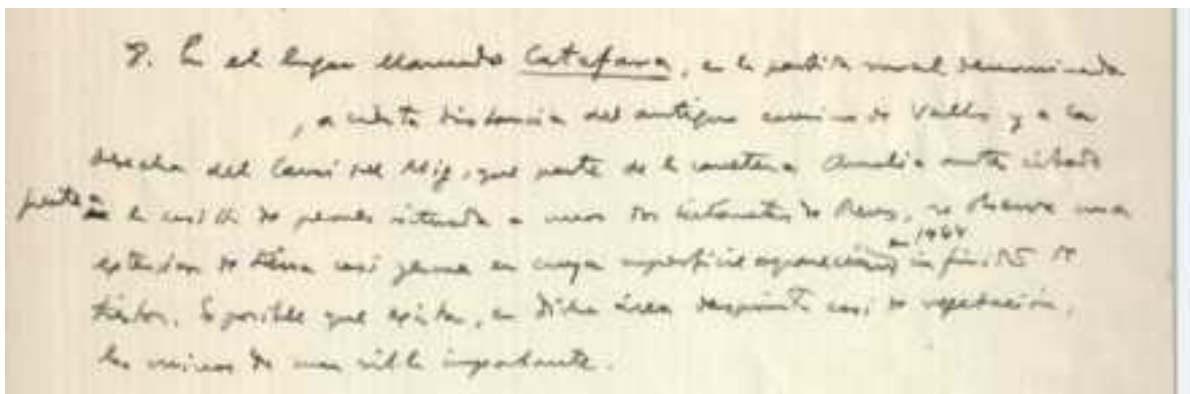 8. En el lugar llamado Catafara, en la partida rural denominada
, a cierta distancia del antiguo camino de Valls y a la
derecha del Camí del Mig, que parte de la carretera Amalia antes citada
frente a la casilla de peones situada a unos dos kilometros de Reus, se observa una
extension de tierra casi yerma en cuya superficie aparecieron en 1964 infinidad de
tiestos. Es posible que existan, en dicha área desprovista casi de vegetación,
las ruinas de una villa importante.